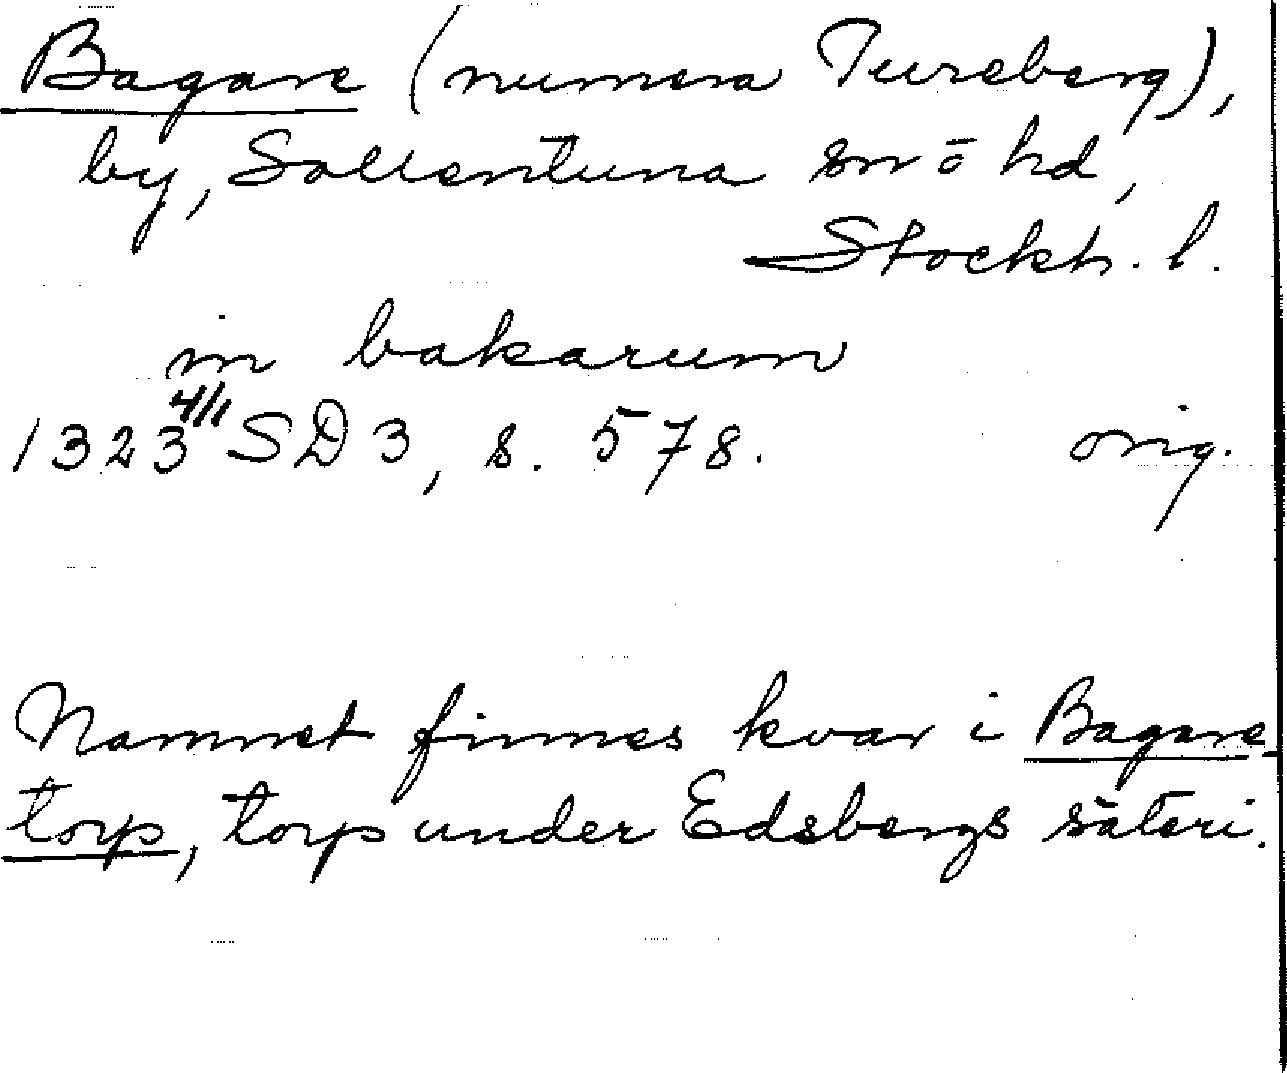 Bagare (numera Tureberg),
by, Sollentuna sn o hd,
Stockh. l.
in bakarum
1323 4/1 SD 3, s. 578. orig.
Namnet finnes kvar i Bagare-
torp, torp under Edsbergs säteri.